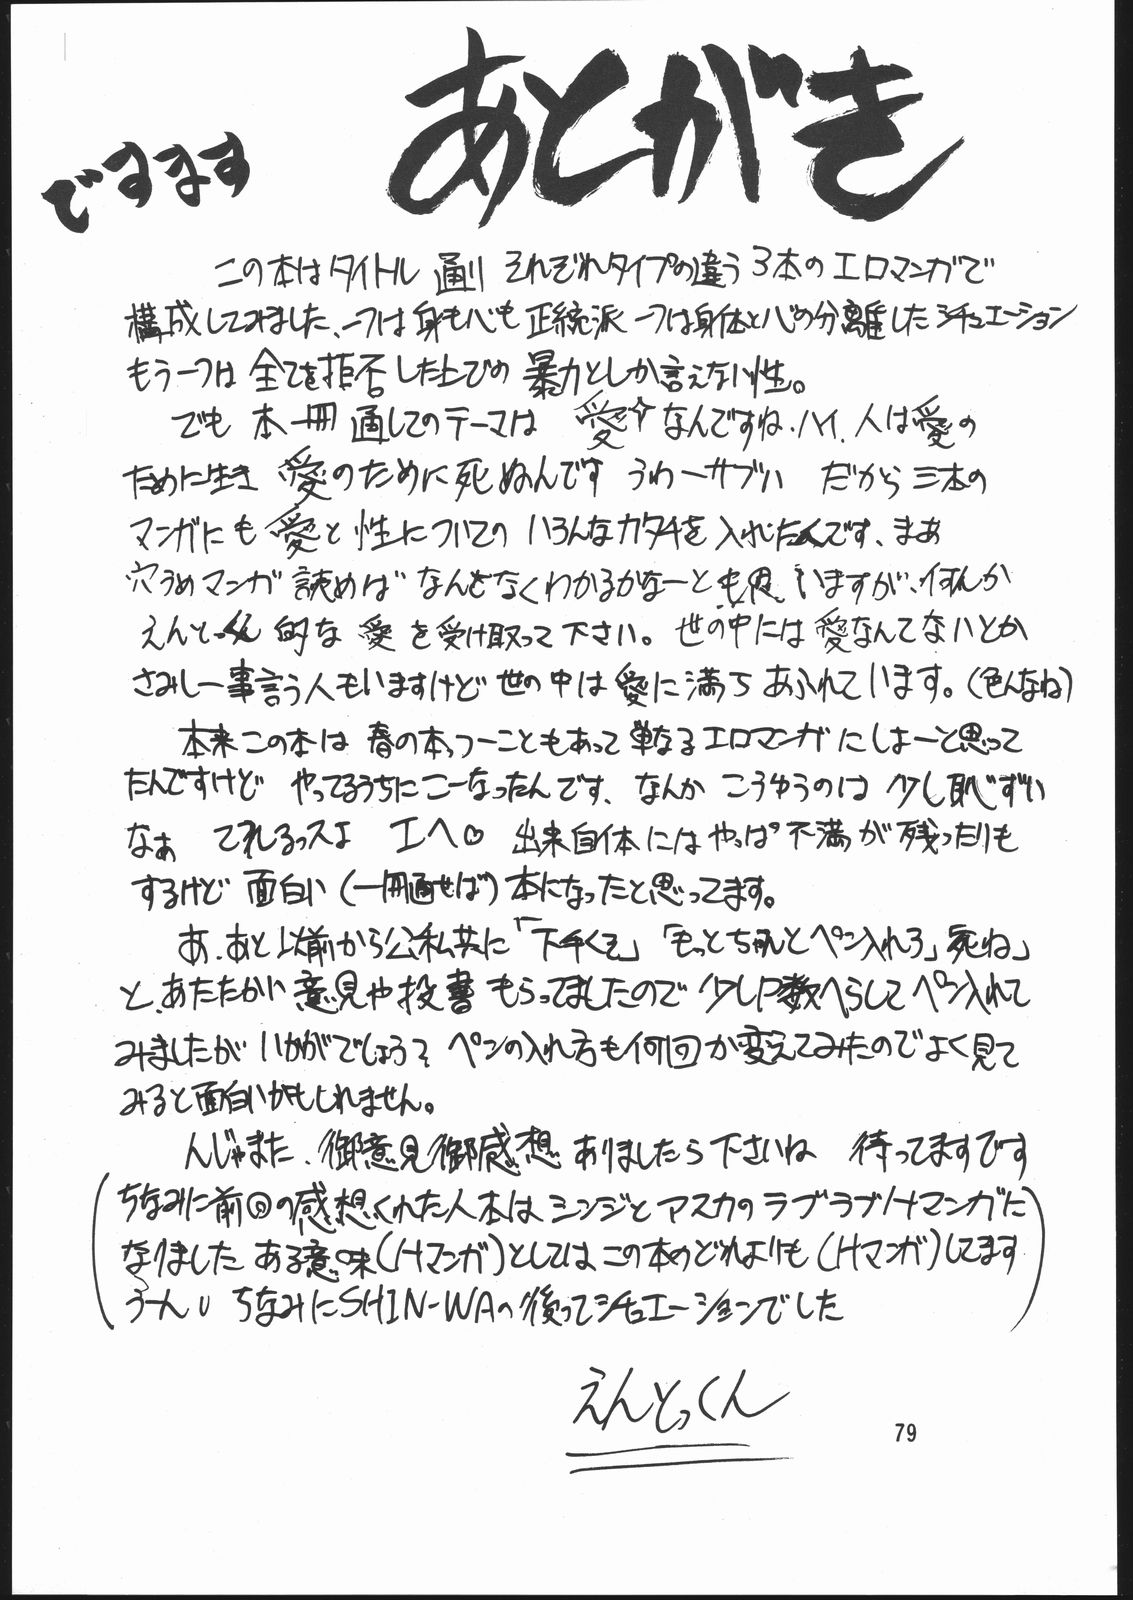 あとがき
ですます
この本はタイトル通り それぞれタイプの違う3本のエロマンガで
構成してみました、一つは身も心も正統派 一つは身体と心の分離したシチュエーション
もう一つは全てを拒否した上での暴力としか言えない性。
でも本一冊通してのテーマは 愛☆なんですね、ハイ、人は愛の
ために生き 愛のために死ぬんです うわーサブい だから三本の
マンガにも愛と性についてのいろんなカタチを入れたんです、まあ
穴うめマンガ読めばなんとなくわかるかなーとも思いますが、何んか
えんとっくん的な愛を受け取って下さい。世の中には愛なんてないとか
さみしー事言う人もいますけど世の中は愛に満ちあふれています。(色んなね)
本来この本は春の本っつーこともあって単なるエロマンガにしよーと思って
たんですけど やってるうちにこーなったんです、なんかこうゆうのは少し恥ずい
なぁ てれるっスよ エヘ♡ 出来自体にはやっぱ不満が残ったりも
するけど面白い(一冊通せば)本になったと思ってます。
あ、あと以前から公私共に「下手くそ」「もっとちゃんとペン入れろ」「死ね」
と、あたたかい意見や投書もらってましたので少しP数へらしてペン入れて
みましたがいかがでしょうか ペンの入れ方も何回か変えてみたのでよく見て
みると面白いかもしれません。
んじゃまた、御意見御感想ありましたら下さいね 待ってますです
(ちなみに前回の感想くれた人本はシンジとアスカのラブラブHマンガに
なりました ある意味(Hマンガ)としてはこの本のどれよりも(Hマンガ)してます
うーん ちなみにSHIN-WAの後ってシチュエーションでした)
えんとっくん
79